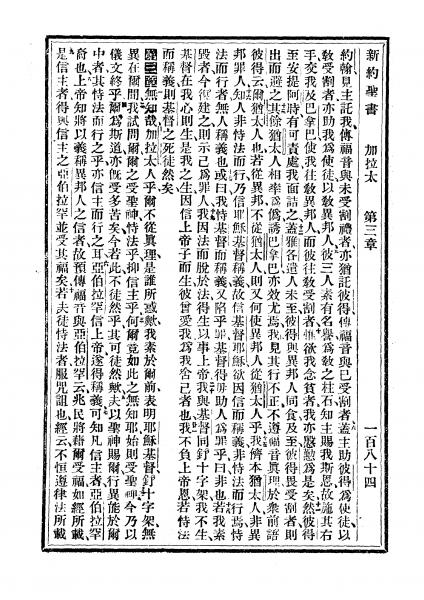 新約聖書 加拉太 第三章 一百八十四
約翰見主託我傳福音與未受割禮者亦猶託彼得傳福音與已受割者蓋主助彼得爲使徒以
敎受割者亦助我爲使徒以敎異邦人彼三人素有名譽爲敎之柱石知主賜我斯恩故施其右
手交我及巴拿巴使我往敎異邦人而彼往敎受割者惟欲我念貧者我亦慇懃爲是矣然彼得
至安提阿時有可責處我面詰之蓋雅各遣人未至彼得與異邦人同食及至彼得畏受割者則
出而避之其餘猶太人相率爲僞誘巴拿巴亦效尤焉我見其行不正不遵福音眞理於衆前語
彼得云爾猶太人也若從異邦不從猶太人則又何使異邦人從猶太人乎我儕本猶太人非異
邦罪人知人非恃法而行乃信耶穌基督稱義故信基督耶穌欲因信而稱義非恃法而行焉恃
法而行者無人稱義也或曰我恃基督而稱義又陷乎罪基督得毋助人爲罪乎曰非也若我素
毀者今復建之則示己爲罪人我因法而脫於法得生以事上帝我與基督同釘十字架我不生
基督在我心則生是我之生因信上帝子而生彼曾愛我爲我舍己者也我不負上帝恩若恃法
而稱義則基督之死徒然矣
第三章無知哉加拉太人乎爾不從眞理是誰所惑歟我素於爾前表明耶穌基督釘十字架無
異在爾間我試問爾爾之受聖神恃法乎抑信主乎何爾竟如此之無知耶始則受聖神今乃以
儀文終乎爾爲斯道亦旣受多苦矣今若此不徒然乎其可徒然歟夫以聖神賜爾行異能於爾
中者其恃法而行之乎亦信主而行之耳亞伯拉罕信上帝遂得稱義可知凡信主者亞伯拉罕
裔也上帝知將以義稱異邦人之信者故預傳福音與亞伯拉罕云兆民將藉爾受福如經所載
是信主者得與信主之亞伯拉罕並受其福矣若夫徒恃法者服咒詛人也經云不恒遵律法所載